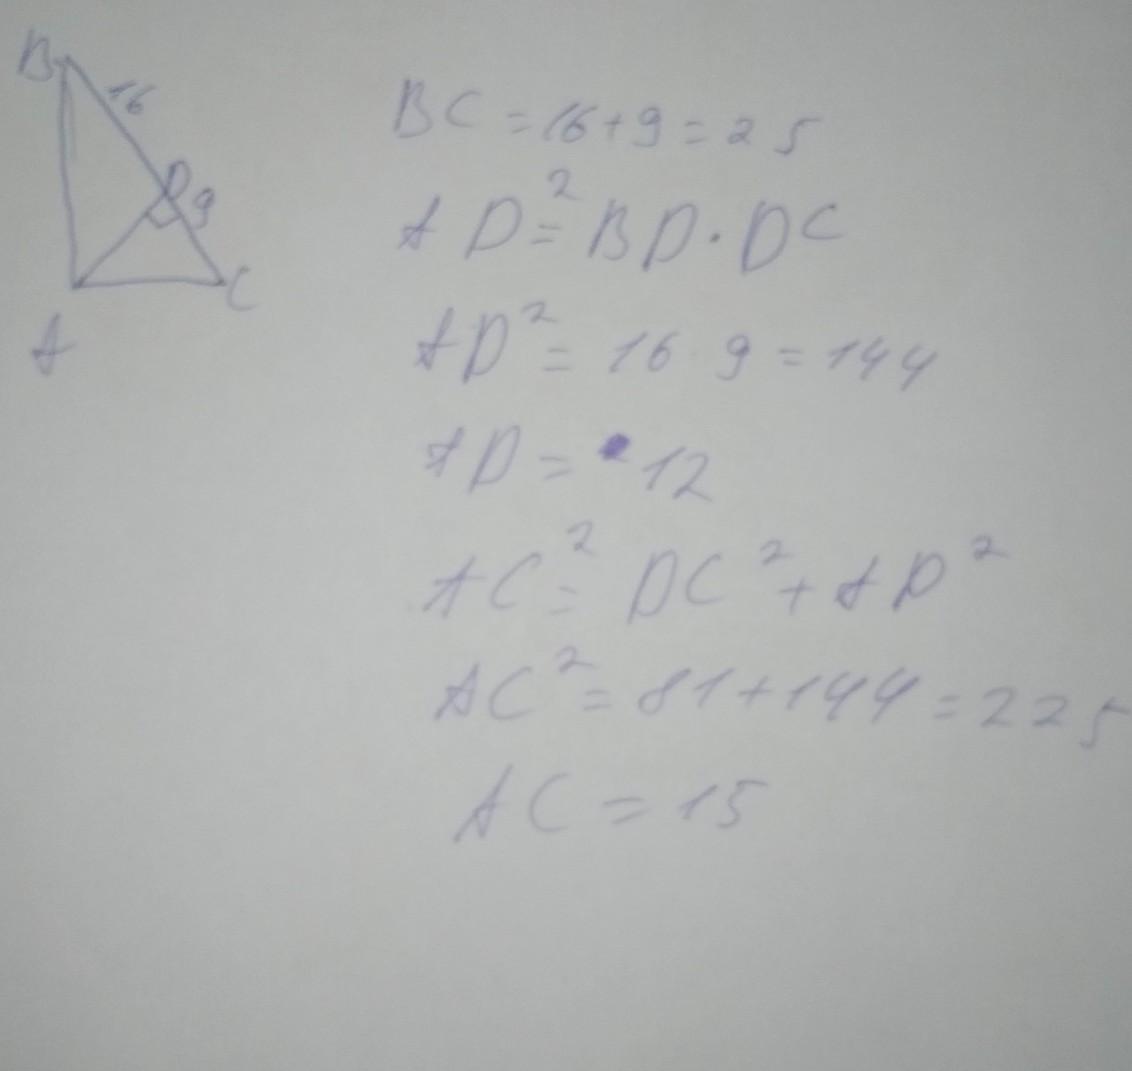 B
16
D
9
C
A
BC = 16 + 9 = 25
AD² = BD · DC
AD² = 16 9 = 144
AD = 12
AC² = DC² + AD²
AC² = 81 + 144 = 225
AC = 15